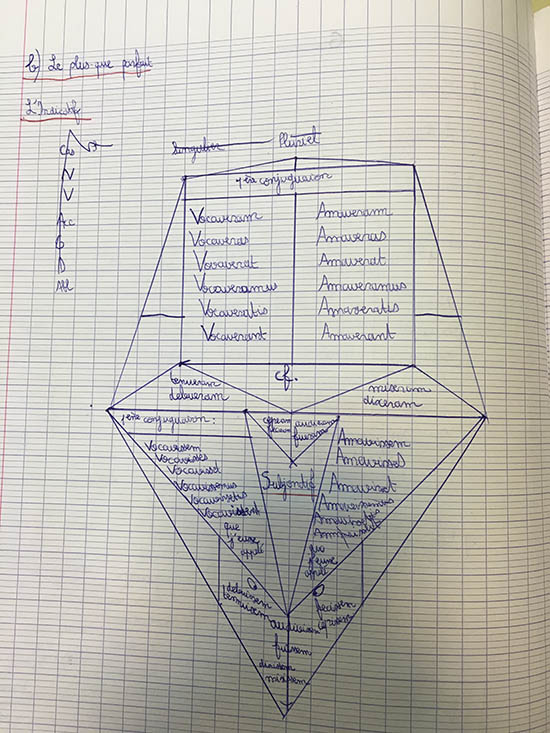 b) Le plus-que parfait
L'Indicatif
Cas
N
V
Acc
G
D
Abl
Singulier
Pluriel
1ère conjuguaison
Vocaveram
Vocaveras
Vocaverat
Vocaveramus
Vocaveratis
Vocaverant
Amaveram
Amaveras
Amaverat
Amaveramus
Amaveratis
Amaverant
cf.
tenueram
deleveram
miseram
dixeram
1ère conjuguaison :
Vocavissem
Vocavisses
Vocavisset
Vocavissemus
Vocavissetis
Vocavissent
que
j'eusse
appelé
audiveram
fueram
Subjonctif
Amavissem
Amavisset
Amavissemus
Amavissetis
que
j'eusse
appelé
delevissem
tenuissem
fecissem
cepissem
audivissem
fuissem
dixissem
misissem